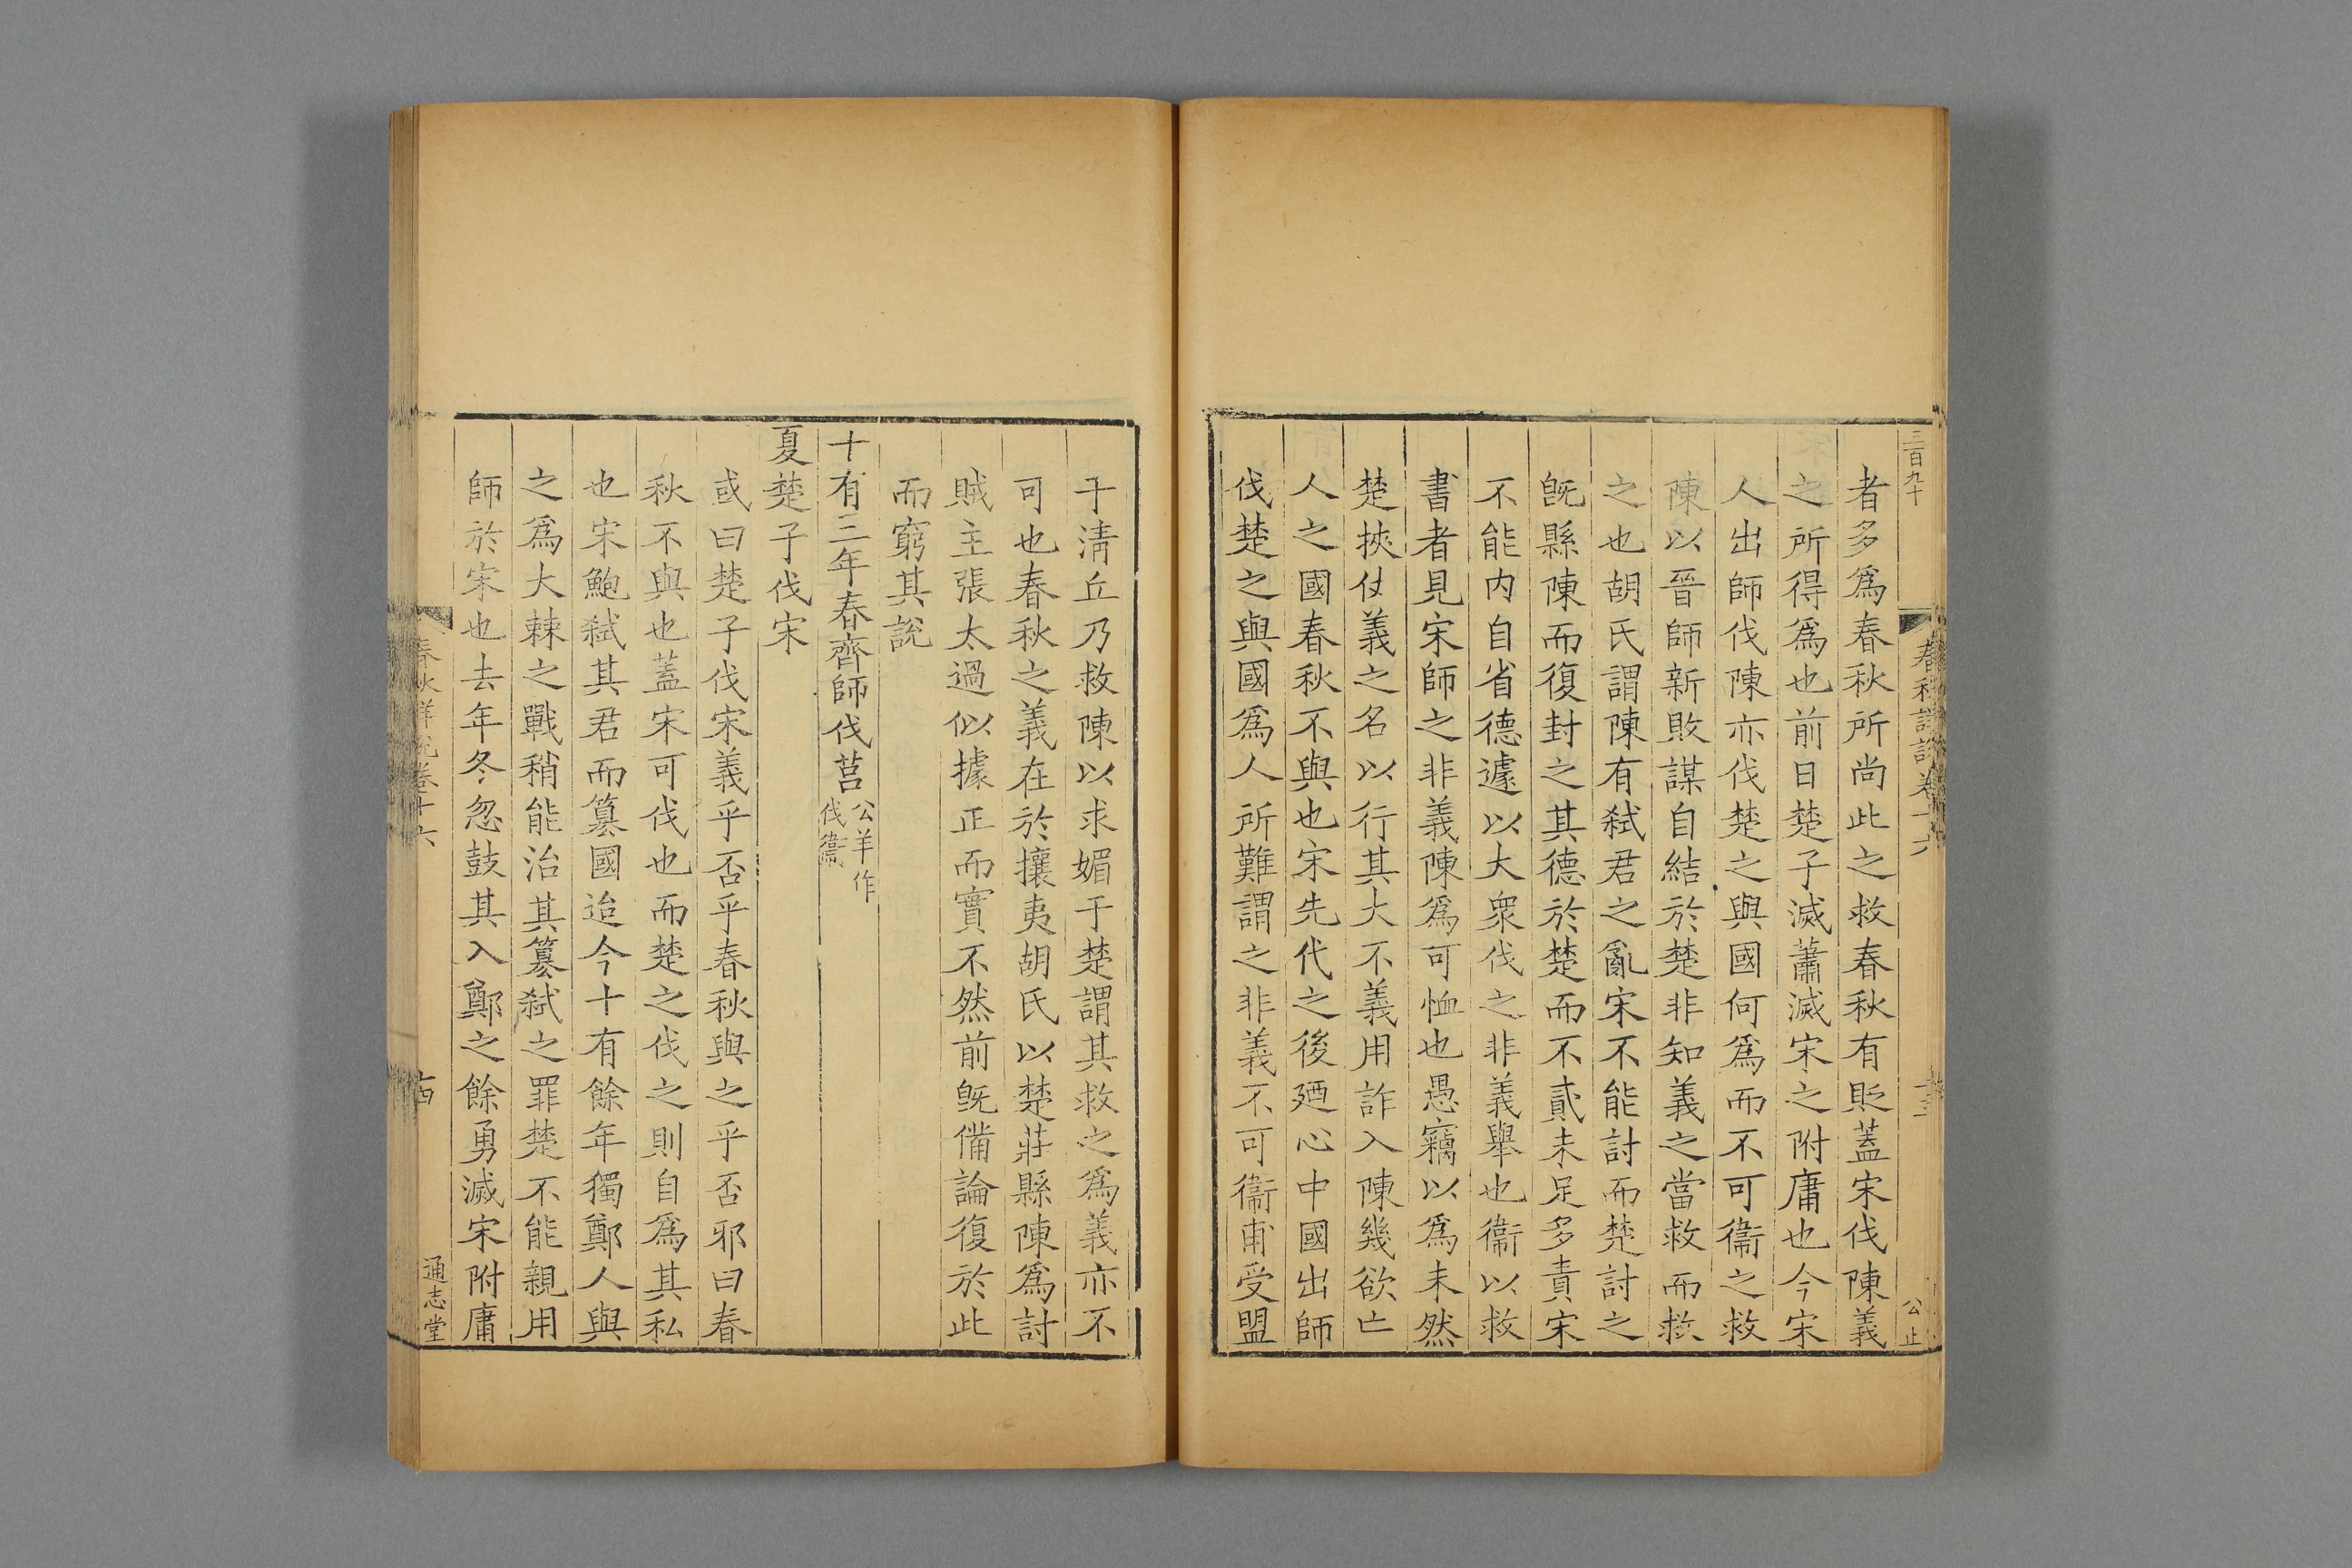 三百九十
春秋詳說卷十六
公止
者多為春秋所尚此之救春秋有貶蓋宋伐陳義
之所得為也前日楚子滅蕭滅宋之附庸也今宋
人出師伐陳亦伐楚之與國何為而不可衞之救
陳以晉師新敗謀自結於楚非知義之當救而救
之也胡氏謂陳有弑君之亂宋不能討而楚討之
旣縣陳而復封之其德於楚而不貳未足多責宋
不能内自省德遽以大衆伐之非義舉也衞以救
書者見宋師之非義陳為可恤也愚竊以為未然
楚挾仗義之名以行其大不義用詐入陳幾欲亡
人之國春秋不與也宋先代之後廼心中國出師
伐楚之與國為人所難謂之非義不可衞甫受盟
于淸丘乃救陳以求媚于楚謂其救之為義亦不
可也春秋之義在於攘夷胡氏以楚莊縣陳為討
賊主張太過似據正而實不然前旣備論復於此
而窮其說
十有三年春齊師伐莒公羊作
伐衞
夏楚子伐宋
或曰楚子伐宋義乎否乎春秋與之乎否邪曰春
秋不與也蓋宋可伐也而楚之伐之則自為其私
也宋鮑弑其君而簒國迨今十有餘年獨鄭人與
之為大棘之戰稍能治其簒弑之罪楚不能親用
師於宋也去年冬忽鼓其入鄭之餘勇滅宋附庸
春秋詳說卷十六
十四
通志堂